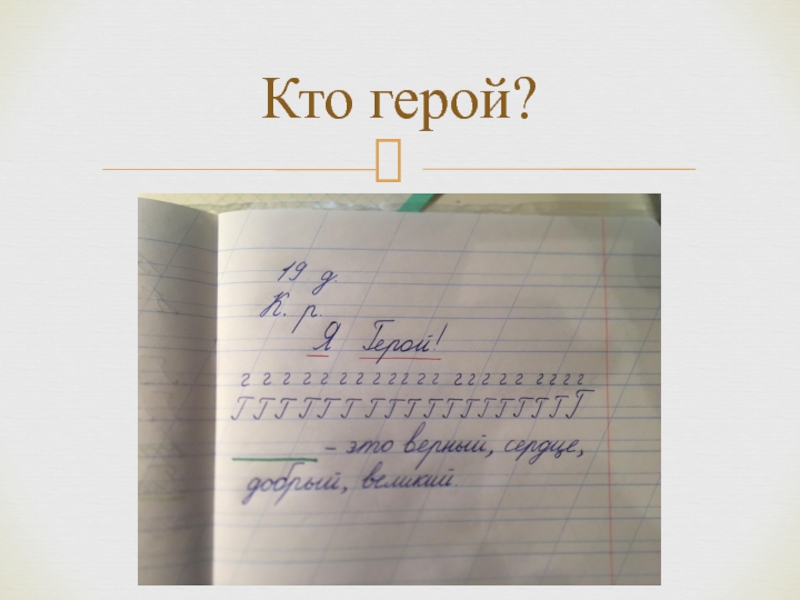 Кто герой?
19 д.
К. р.
Я Герой!
г г г г г г г г г г г г г г г г г г г г г
Г Г Г Г Г Г Г Г Г Г Г Г Г Г Г Г Г Г
_______ – это верный, сердце,
добрый, великий.